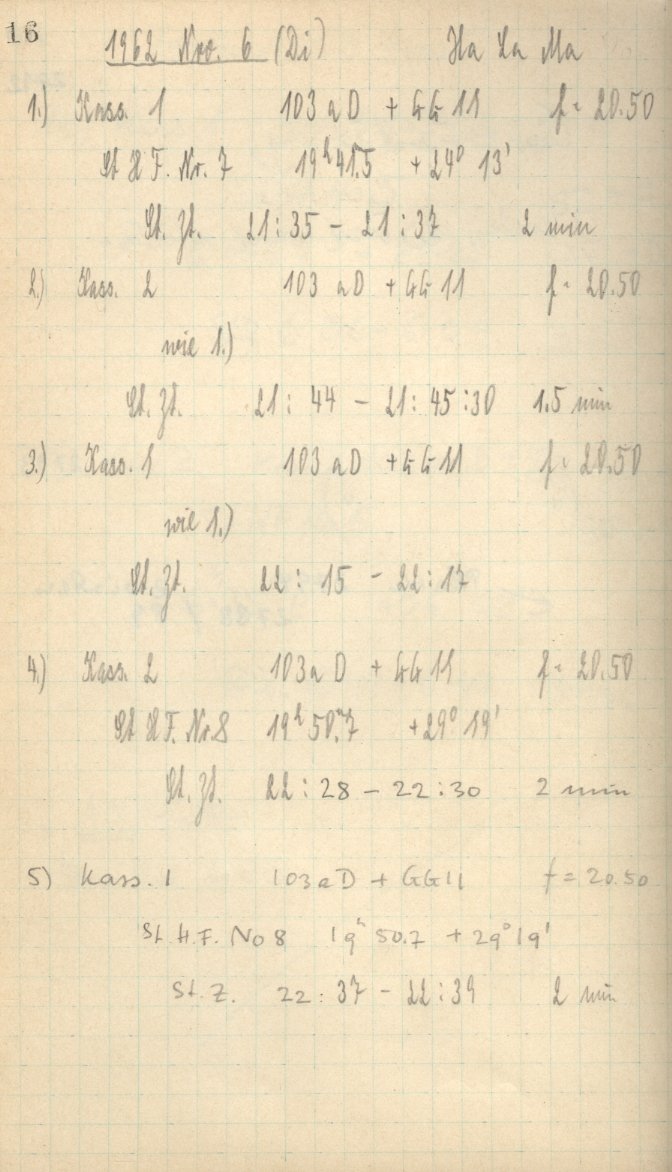 16
1962 Nov. 6 (Di) Ha La Ma
1.) Kass. 1 103 aD + GG 11 f = 20.50
St H F. Nr. 7 19h 41.5 + 24° 13'
St. Zt. 21:35 - 21:37 2 min
2.) Kass. 2 103 aD + GG 11 f = 20.50
wie 1.)
St. Zt. 21:44 - 21:45:30 1.5 min
3.) Kass. 1 103 aD + GG 11 f = 20.50
wie 1.)
St. Zt. 22:15 - 22:17
4.) Kass. 2 103a D + GG 11 f = 20.50
St H F. Nr. 8 19h 50.m7 + 29° 19'
St. Zt. 22:28 - 22:30 2 min
5) Kass. 1 103aD + GG11 f = 20.50
St H.F. No 8 19h 50.7 + 29° 19'
St. Z. 22:37 - 22:39 2 min